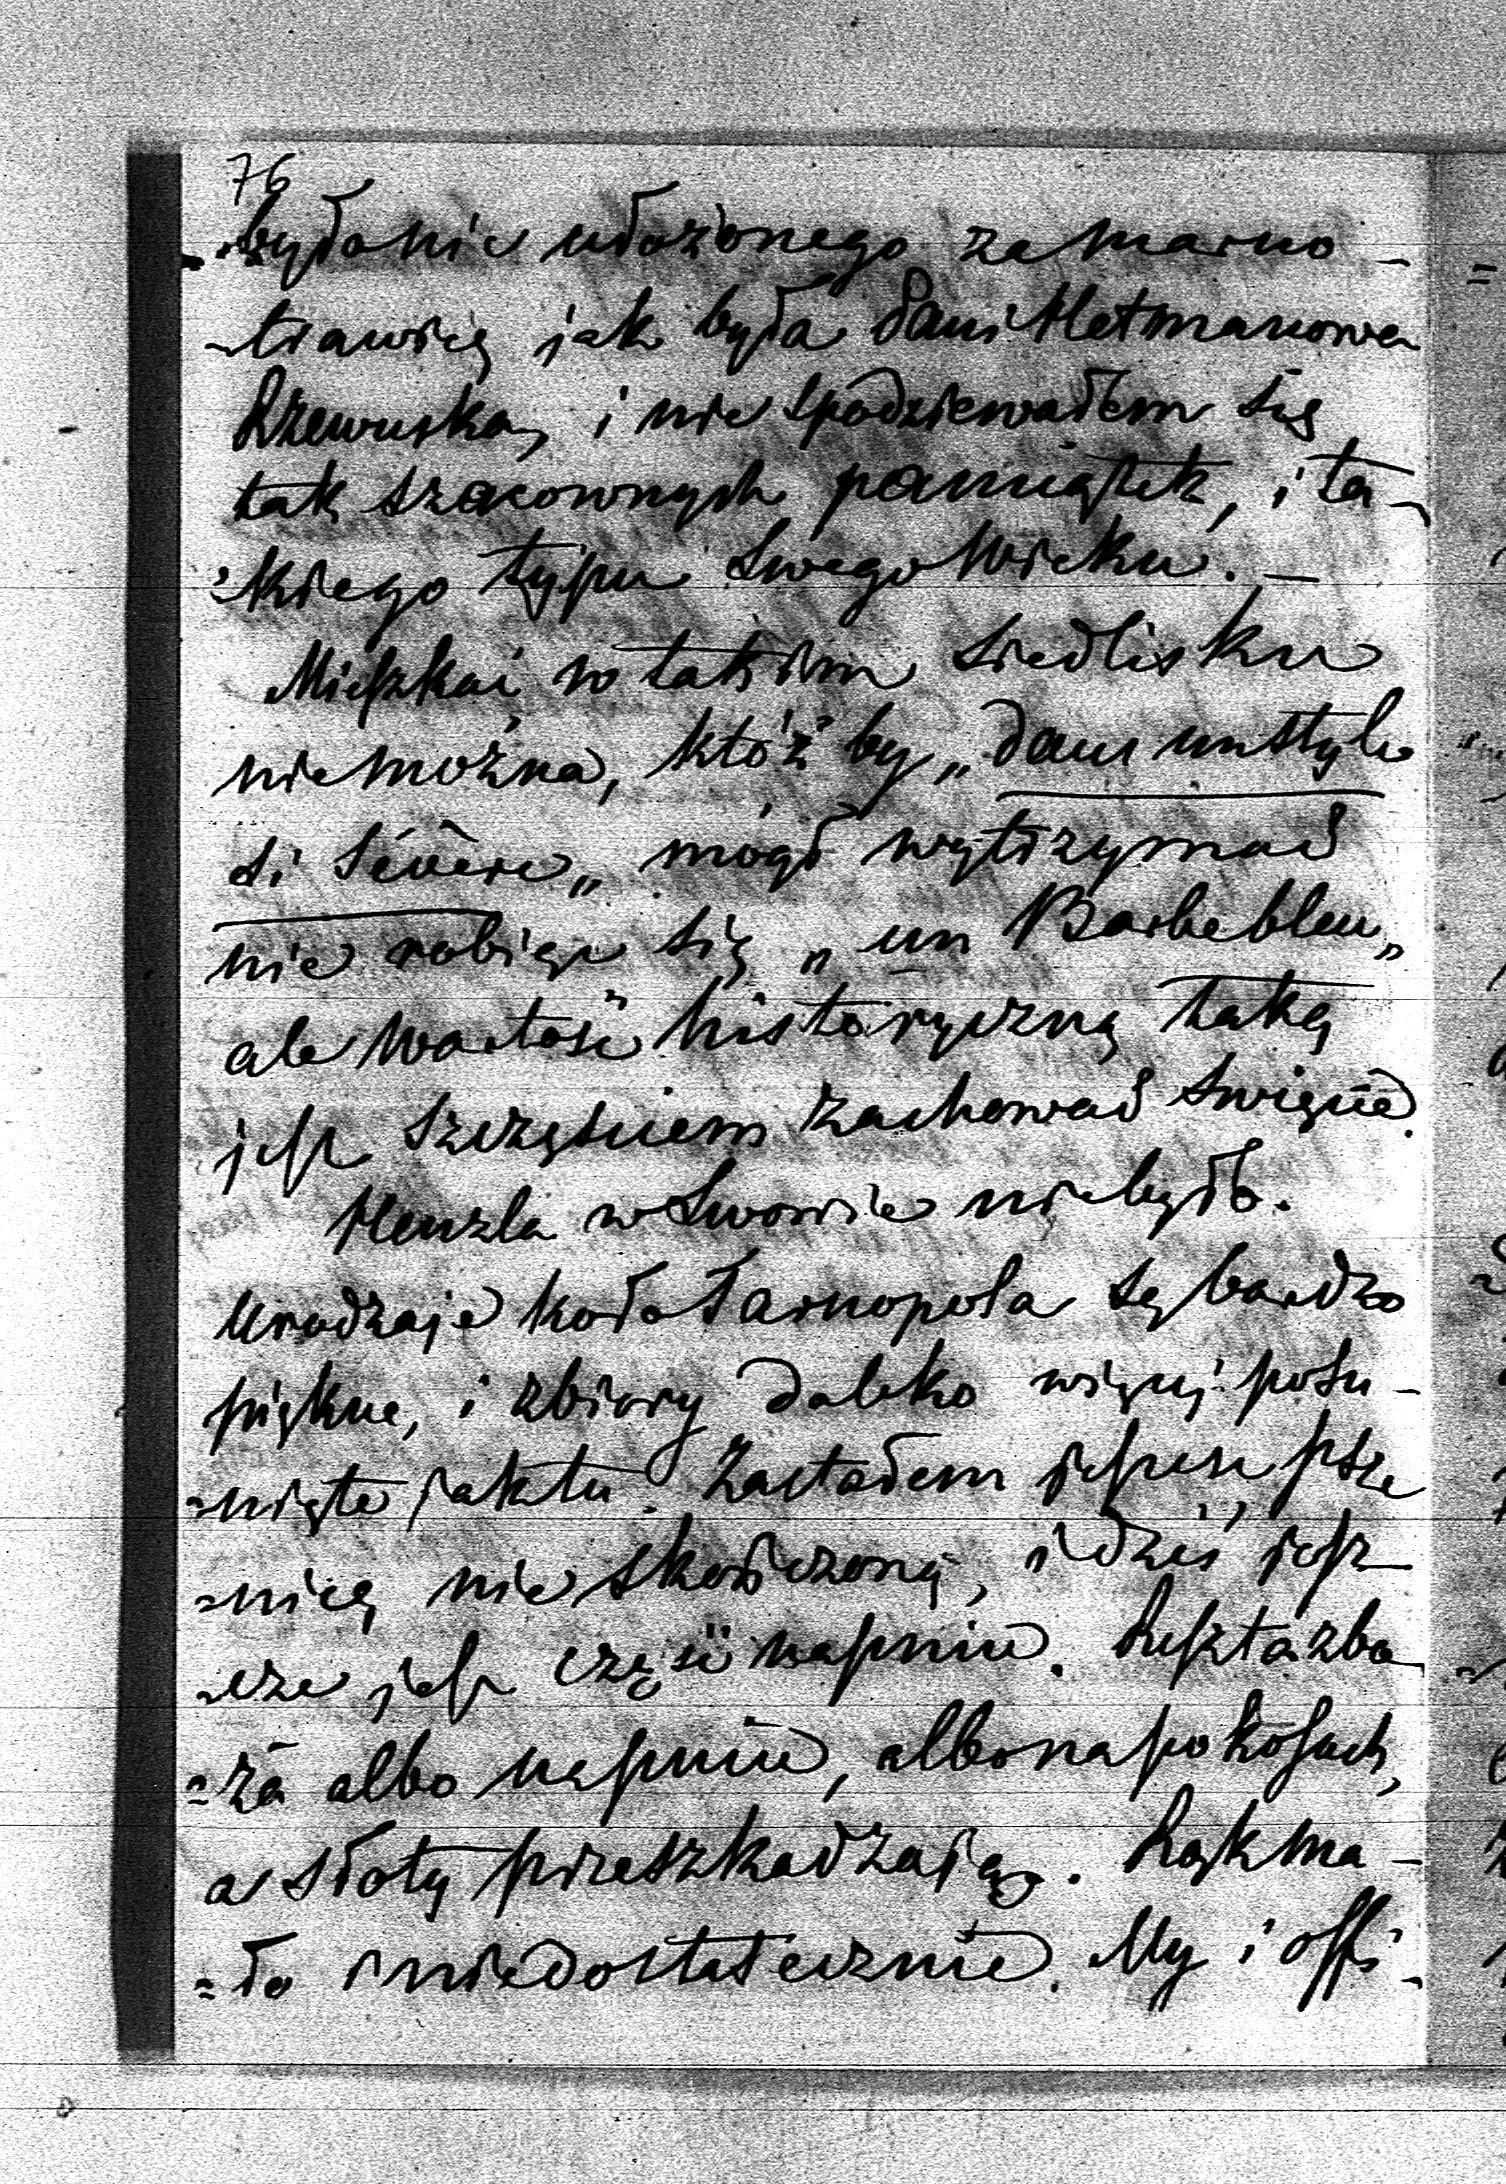 76
bydo nie udożonego za marno-
-trawią jak była Pani Hetmanowa
Rzewuska, i nie spodziewałem się
tak szacownych pamiątek, i ta-
-kiego typu swego wieku. —
Mieszkać w takiém siedlisku
niemożna, któż by „dans un style
si sévère„ mógł wytrzymać
nie robiąc się „un Barbe bleu„
ale wartość historyczną taką
jest szczęściem zachować święcie.
Henzla w Lwowie nie było.
Urodzaje koło Tarnopola są bardzo
piękne, i zbiory daleko więcej posu-
=nięte jak tu. Zastałem jeszcze psze
=nicę nie skończoną, i dziś jesz-
=cze jest część na pniu. Reszta zbo
=ża albo na pniu, albo na pokosach,
a słoty przeszkadzają. Rąk ma-
=ło i niedostatecznie. My i offi-